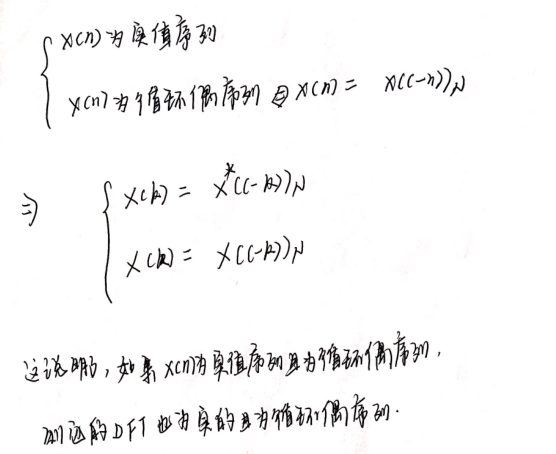 x(n)为实值序列
x(n)为循环偶序列 即 x(n) = x((-n))N
⇒
X(k) = X*((-k))N
X(k) = X((-k))N
这说明,如果x(n)为实值序列且为循环偶序列,
则它的DFT也为实的且为循环偶序列.